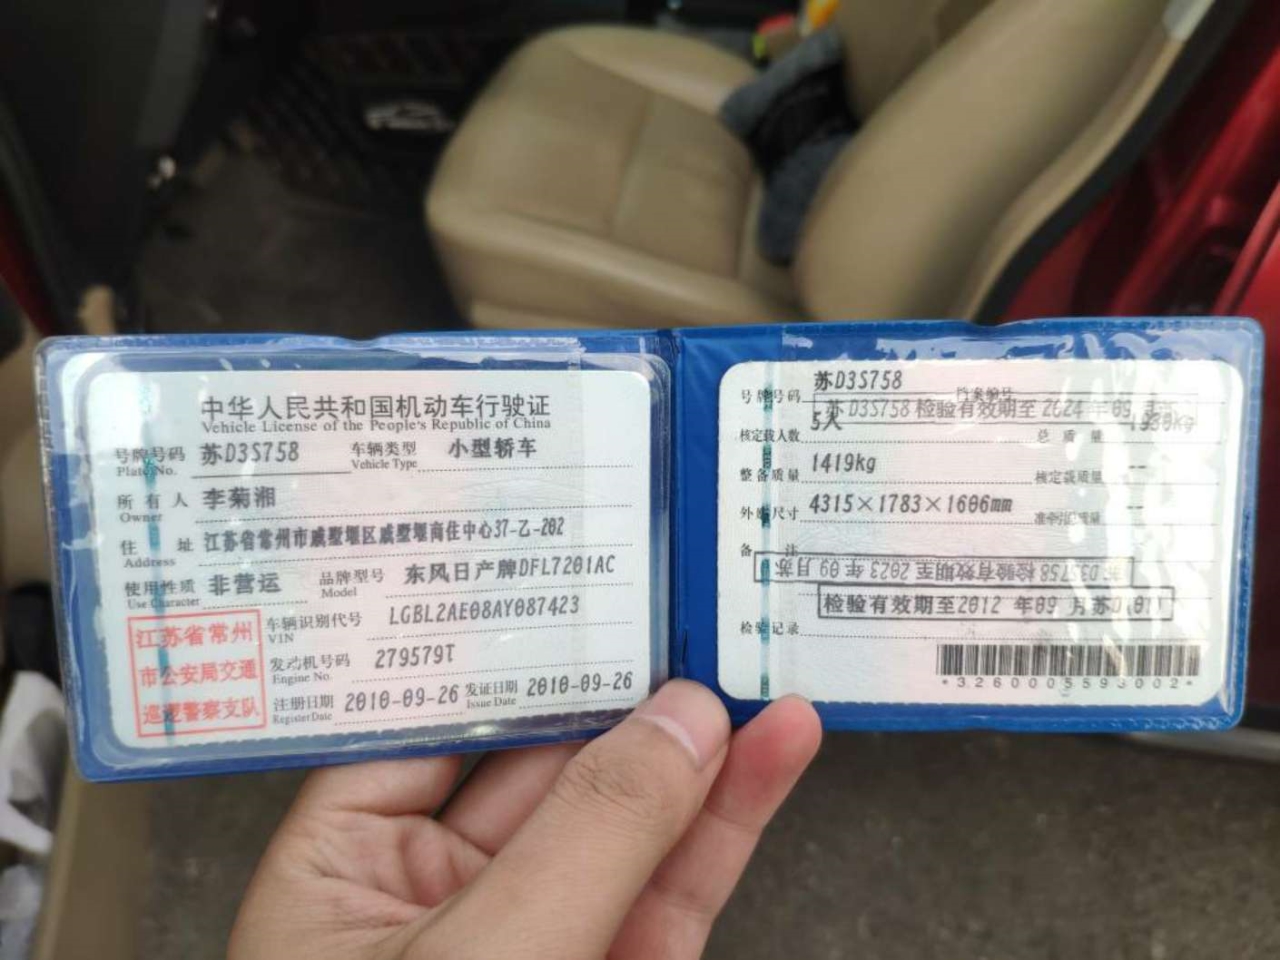 中华人民共和国机动车行驶证
Vehicle License of the People's Republic of China
号牌号码 苏D3S758 车辆类型 小型轿车
Plate No. Vehicle Type
所有人 李菊湘
Owner
住址 江苏省常州市戚墅堰区戚墅堰商住中心37-乙-202
Address
使用性质 非营运 品牌型号 东风日产牌DFL7201AC
Use Character Model
车辆识别代号 LGBL2AE08AY087423
VIN
发动机号码 279579T
Engine No.
注册日期 2010-09-26 发证日期 2010-09-26
Register Date Issue Date
江苏省常州
市公安局交通
巡逻警察支队
号牌号码 苏D3S758 档案编号
苏D3S758检验有效期至2024年09
核定载人数 5人 总质量 1930kg
整备质量 1419kg 核定载质量 --
外廓尺寸 4315×1783×1606mm 准牵引总质量 --
备注
苏D3S758检验有效期至2023年09月苏
检验有效期至2012年09月苏D(01)
检验记录
*3260005593002*